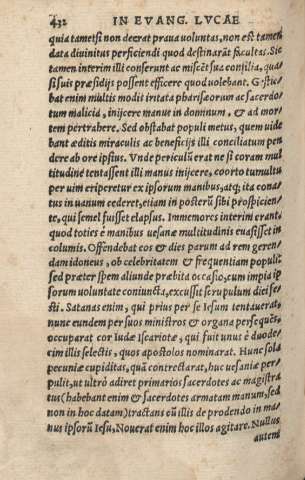 432 IN EVANG. LVCAE
quia tametsi non deerat praua voluntas, non est tamen
data diuinitus perficiendi quod destinarāt facultas. Sic
tamen interim illi conserunt ac miscēt sua consilia, qua
si suis præsidijs possent efficere quod volebant. Gestie
bat enim multis modis iritata pharisæorum ac sacerdo
tum malicia, inijcere manus in dominum, & ad mor
tem pertrahere. Sed obstabat populi metus, quem vide
bant æditis miraculis ac beneficijs illi conciliatum pen
dere ab ore ipsius. Vnde periculū erat ne si coram mul
titudine tentassent illi manus inijcere, coorto tumultu
per uim eriperetur ex ipsorum manibus, atq; ita cona
tus in uanum cederet, etiam in posterū sibi prospicien-
te, qui semel fuisset elapsus. Immemores interim erant,
quod toties è manibus uesanæ multitudinis euasisset in
columis. Offendebat eos & dies parum ad rem geren,
dam idoneus, ob celebritatem & frequentiam populi:
sed præter spem aliunde præbita occasio, cum impia ip
sorum voluntate coniuncta, excussit scrupulum diei fe-
sti. Satanas enim, qui prius per se Iesum tentauerat,
nunc eundem per suos ministros & organa persequēs,
occuparat cor Iudæ Iscariotæ, qui fuit unus è duode-
cim illis selectis, quos apostolos nominarat. Hunc sola
pecuniæ cupiditas, quā contrectarat, huc uesaniæ per-
pulit, ut ultrò adiret primarios sacerdotes ac magistra
tus (habebant enim & sacerdotes armatam manum, sed
non in hoc datam) tractans cū illis de prodendo in ma-
nus ipsorū Iesu, Nouerat enim hoc illos agitare. Nullus
autem